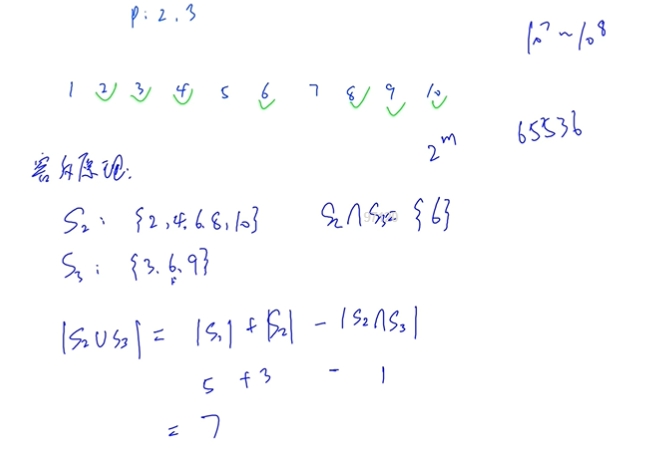 p: 2, 3
10⁷ ~ 10⁸
1 2 3 4 5 6 7 8 9 10
2ᵐ 65536
容斥原理:
S₂: {2,4,6,8,10} S₂∩S₃= {6}
S₃: {3,6,9}
|S₂∪S₃| = |S₁| + |S₂| - |S₂∩S₃|
5 + 3 - 1
= 7